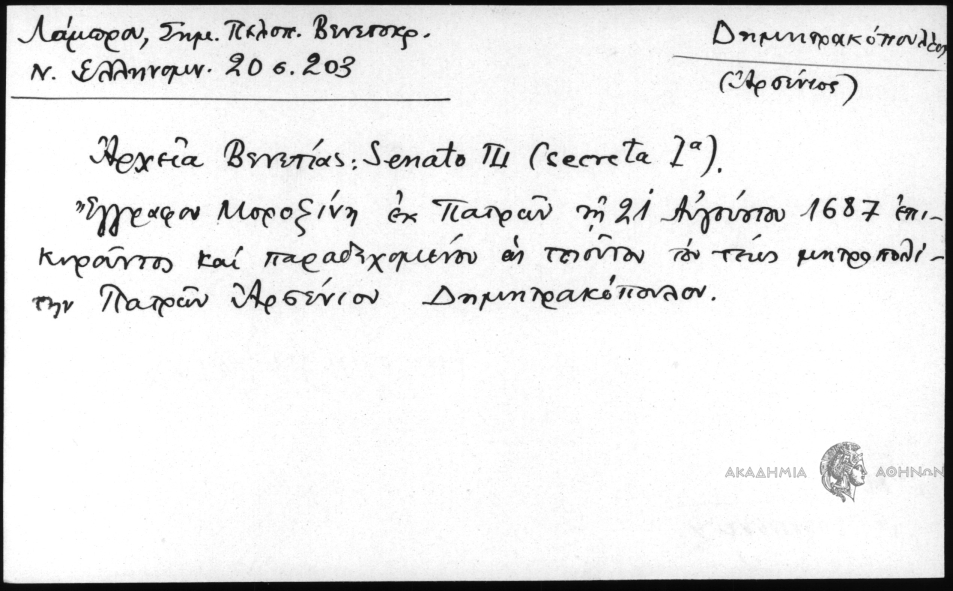 Λάμπρου, Σημ. Πελοπ. Βενετοκρ.
Ν. Ελληνομν. 20 σ. 203
Δημητρακόπουλος
(Ἀρσένιος)
Ἀρχεῖα Βενετίας: Senato III (secreta Iα).
Ἔγγραφον Μοροζίνη ἐκ Πατρῶν τῇ 21 Αὐγούστου 1687 ἐπι-
κυροῦντος καί παραδεχομένου ὡς τοιοῦτον τόν τέως μητροπολί-
την Πατρῶν Ἀρσένιον Δημητρακόπουλον.
ΑΚΑΔΗΜΙΑ ΑΘΗΝΩΝ